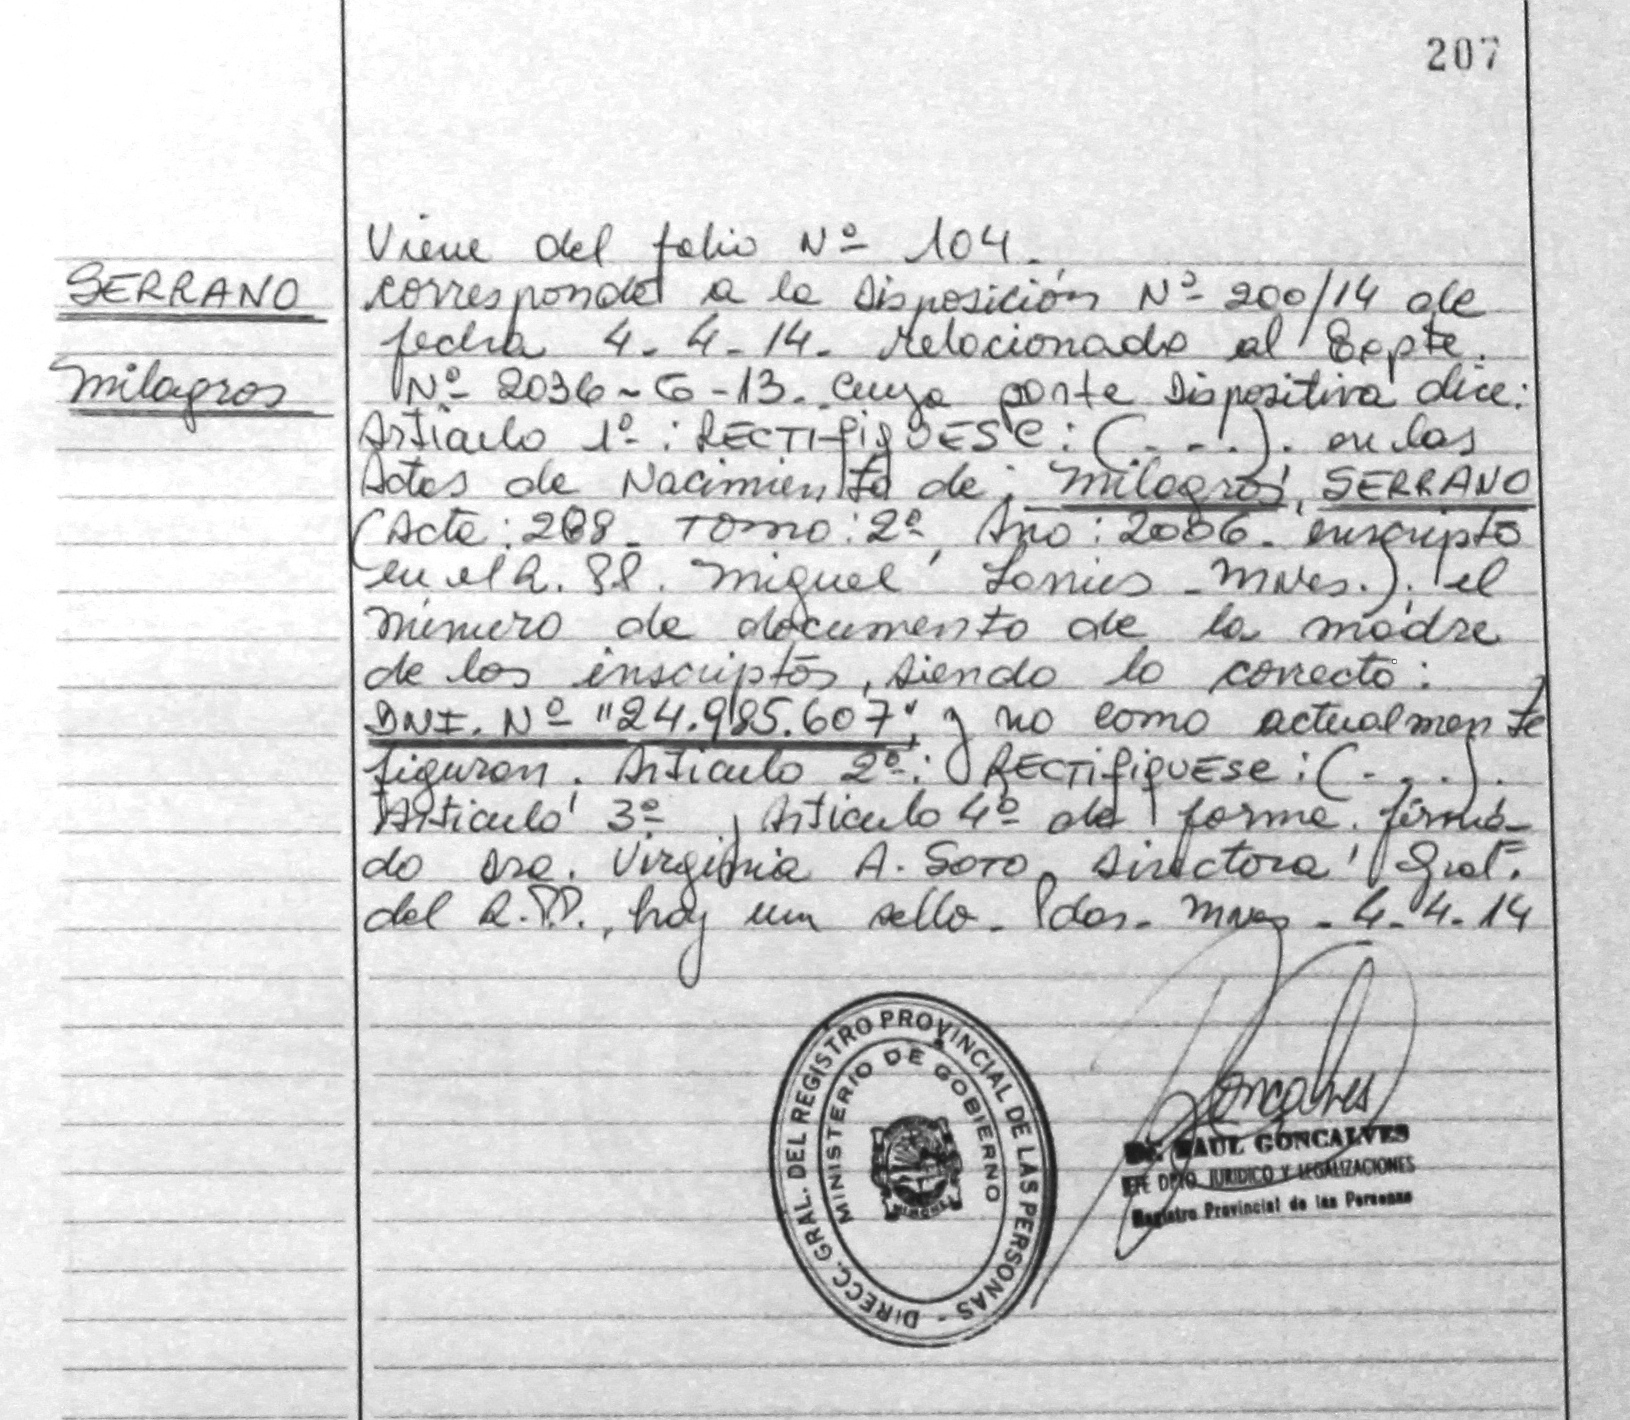 207
Viene del folio Nº 104.
SERRANO
corresponde a la Disposición Nº 200/14 de
fecha 4-4-14. relacionado al Expte.
Milagros
Nº 2036-G-13. cuya parte Dispositiva dice:
Artículo 1º: RECTIFIQUESE: (...). en las
Actas de Nacimiento de: Milagros, SERRANO
(Acta: 288. Tomo: 2º, Año: 2006. inscripta
en el R. Pl. Miguel Lanus - Mnes.). el
número de documento de la madre
de los inscriptos, siendo lo correcto:
DNI. Nº "24.985.607", y no como actualmente
figuran. Artículo 2º: RECTIFIQUESE: (...).
Artículo 3º y Artículo 4º de forma. firma-
do Dra. Virginia A. Soto, Directora Gral.
del R.P.P., hay un sello. Pdas. Mnes - 4-4-14
DIRECC. GRAL. DEL REGISTRO PROVINCIAL DE LAS PERSONAS -
MINISTERIO DE GOBIERNO
MISIONES
Goncalves
Dr. RAUL GONCALVES
JEFE DPTO. JURIDICO Y LEGALIZACIONES
Registro Provincial de las Personas